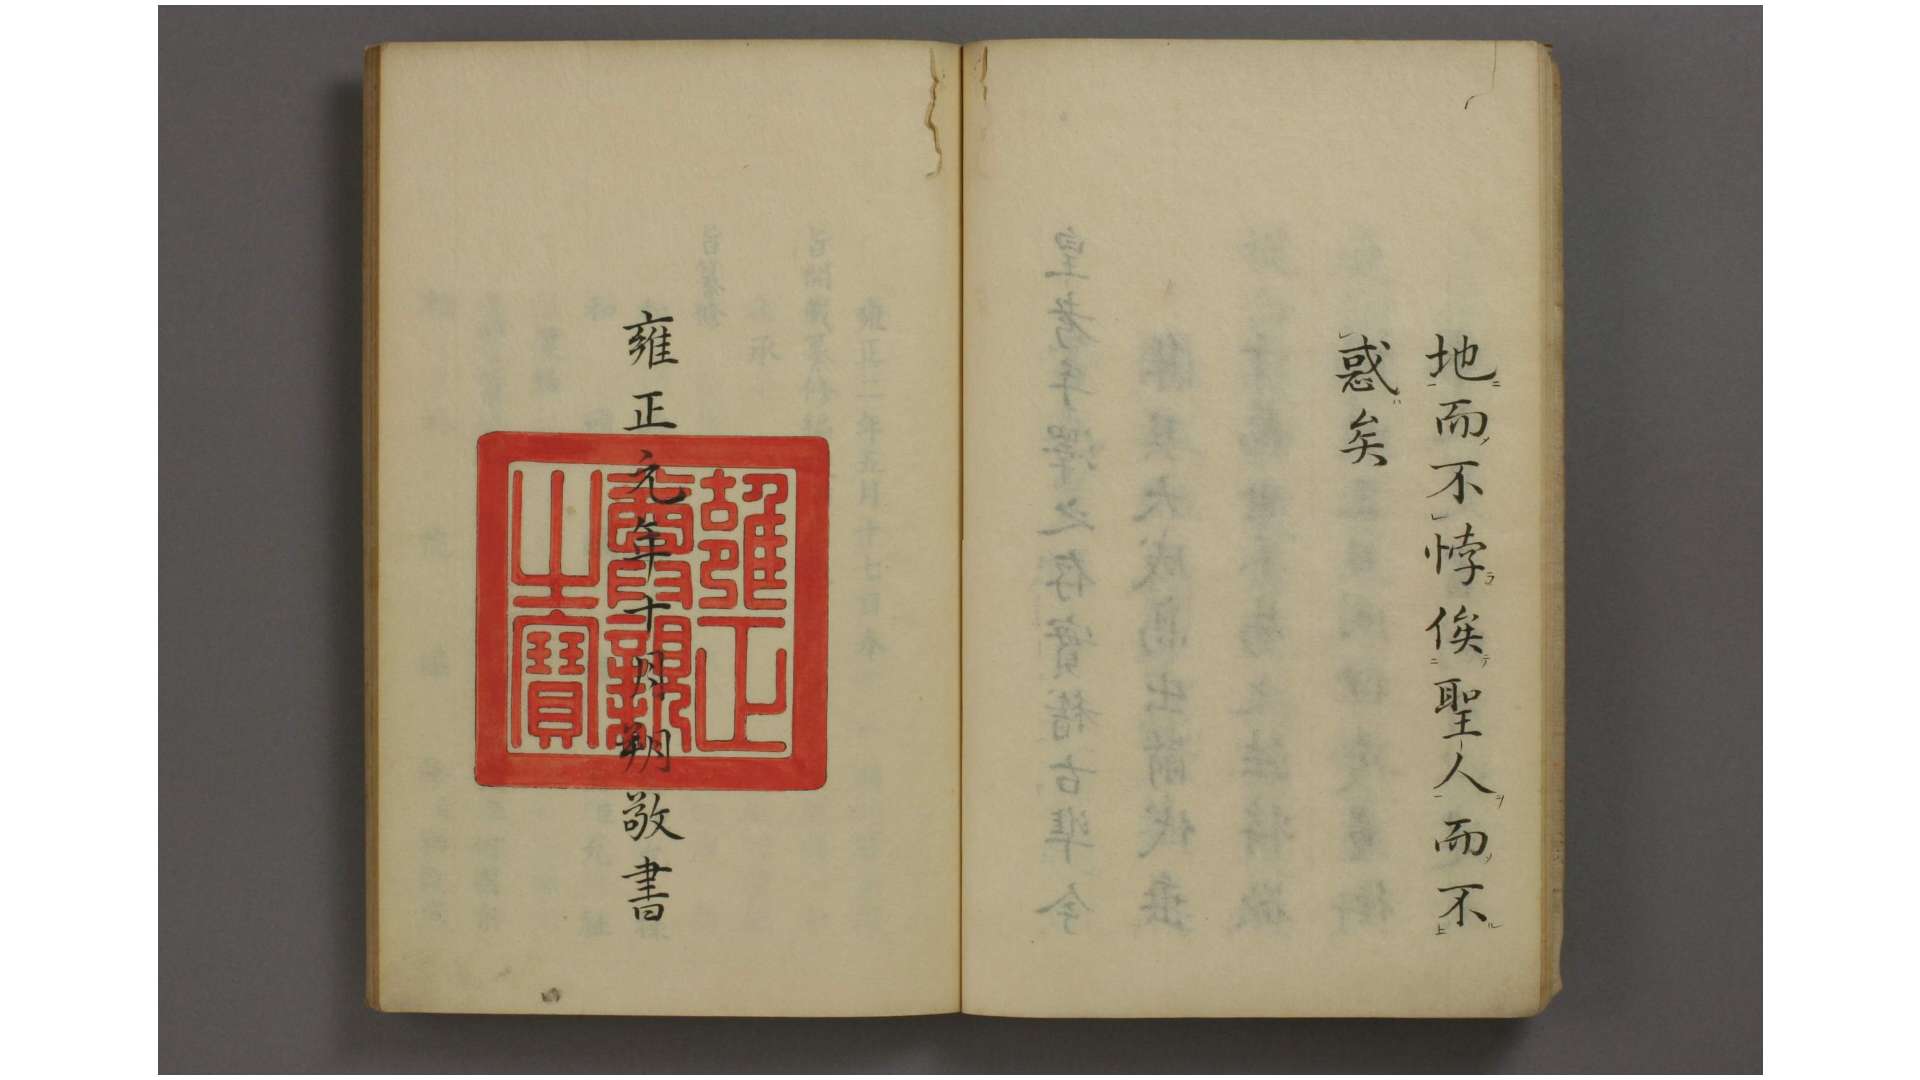 地而不悖俟聖人而不
惑矣
雍正元年十月朔敬書
雍正
尊親
之寶